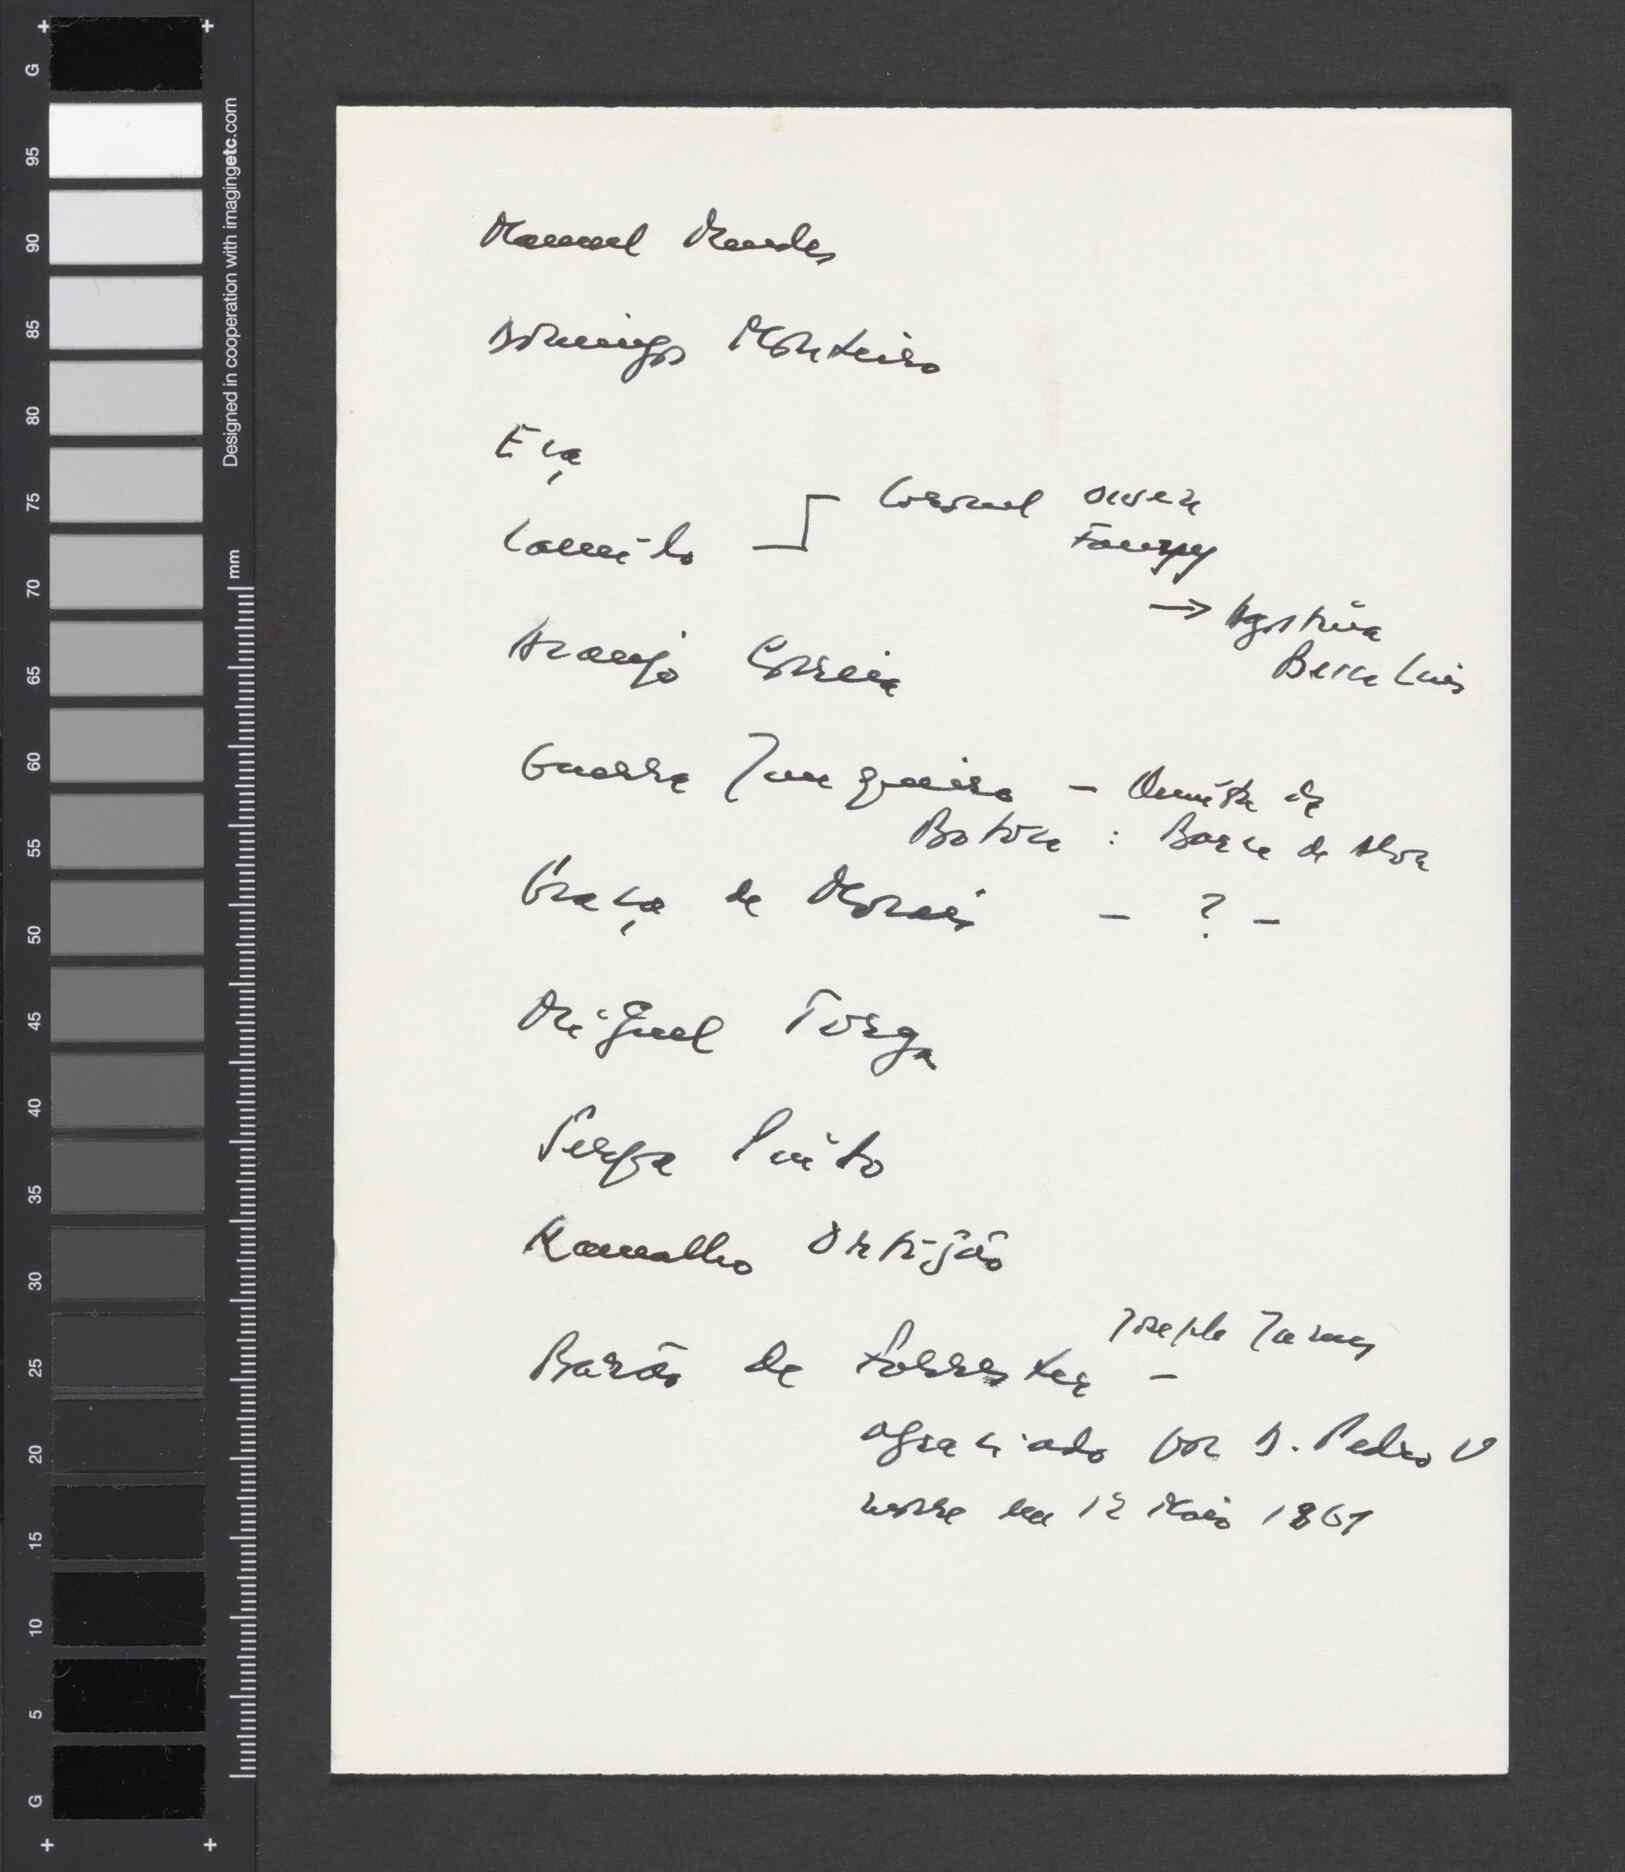 G
95
90
85
80
75
70
65
60
55
50
45
40
35
30
25
20
15
10
5
G
Designed in cooperation with imagingetc.com
mm
Manuel Mendes
Domingos Monteiro
Eça
Camilo
Coronel Owen
Fanny
→ Agostina
Bessa Luis
Araujo Correia
Guerra Junqueiro - Quinta da
Batoca : Barca de Alva
Graça de Morais - ? -
Miguel Torga
Serpa Pinto
Ramalho Ortigão
Joseph James
Barão de Forrester -
agraciado por D. Pedro V
morre em 12 Maio 1861